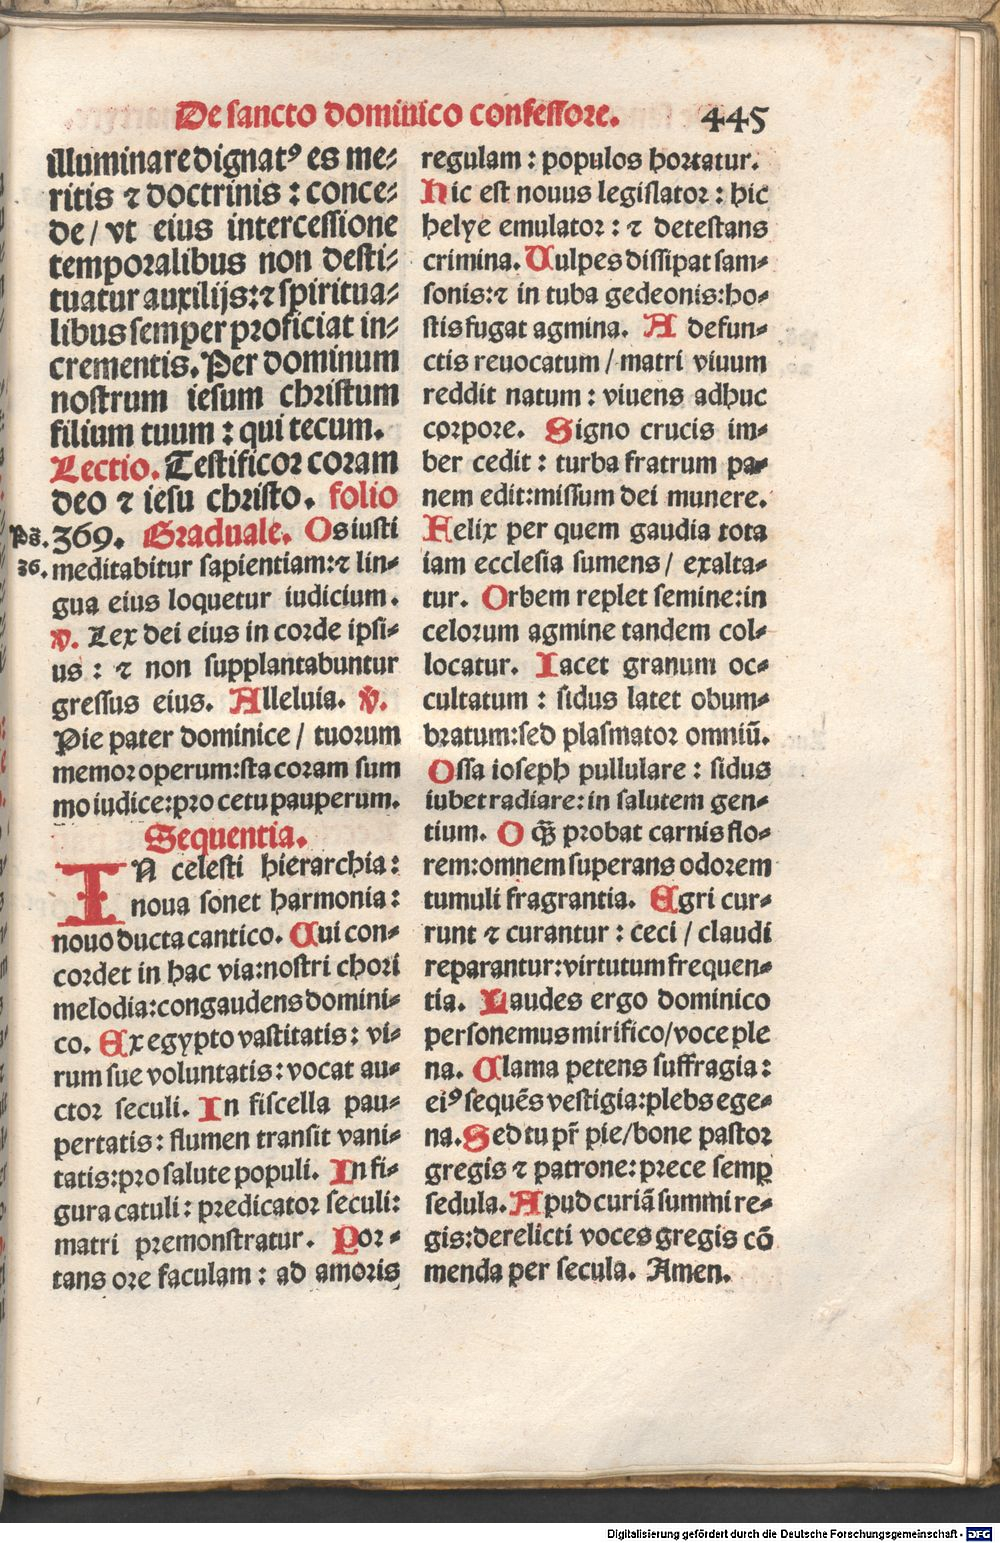 De sancto dominico confessore. 445
illuminare dignatꝰ es me⸗
ritis ⁊ doctrinis : conce⸗
de / vt eius intercessione
temporalibus non desti⸗
tuatur auxilijs:⁊ spiritua⸗
libus semper proficiat in⸗
crementis. Per dominum
nostrum iesum christum
filium tuum : qui tecum.
Lectio. Testificor coram
deo ⁊ iesu christo. folio
Ps̄. 369. Graduale. Os iusti
36. meditabitur sapientiam:⁊ lin⸗
gua eius loquetur iudicium.
℣. Lex dei eius in corde ipsi⸗
us : ⁊ non supplantabuntur
gressus eius. Alleluia. ℣.
Pie pater dominice / tuorum
memor operum:sta coram sum
mo iudice:pro cetu pauperum.
Sequentia.
IN celesti hierarchia :
noua sonet harmonia :
nouo ducta cantico. Cui con⸗
cordet in hac via:nostri chori
melodia:congaudens domini⸗
co. Ex egypto vastitatis : vi⸗
rum sue voluntatis : vocat au⸗
ctor seculi. In fiscella pau⸗
pertatis : flumen transit vani⸗
tatis:pro salute populi. In fi⸗
gura catuli : predicator seculi:
matri premonstratur. Por⸗
tans ore faculam : ad amoris
regulam : populos hortatur.
Hic est nouus legislator : hic
helye emulator : ⁊ detestans
crimina. Vulpes dissipat sam⸗
sonis:⁊ in tuba gedeonis:ho⸗
stis fugat agmina. A defun⸗
ctis reuocatum / matri viuum
reddit natum : viuens adhuc
corpore. Signo crucis im⸗
ber cedit : turba fratrum pa⸗
nem edit:missum dei munere.
Felix per quem gaudia tota
iam ecclesia sumens / exalta⸗
tur. Orbem replet semine:in
celorum agmine tandem col⸗
locatur. Iacet granum oc⸗
cultatum : sidus latet obum⸗
bratum:sed plasmator omniū.
Ossa ioseph pullulare : sidus
iubet radiare: in salutem gen⸗
tium. O qȝ probat carnis flo⸗
rem:omnem superans odorem
tumuli fragrantia. Egri cur⸗
runt ⁊ curantur : ceci / claudi
reparantur:virtutum frequen⸗
tia. Laudes ergo dominico
personemus mirifico/voce ple
na. Clama petens suffragia :
eiꝰ sequēs vestigia:plebs ege⸗
na. Sed tu pr̄ pie/bone pastor
gregis ⁊ patrone: prece semꝑ
sedula. Apud curiā summi re⸗
gis:derelicti voces gregis cō
menda per secula. Amen.
Digitalisierung gefördert durch die Deutsche Forschungsgemeinschaft - DFG